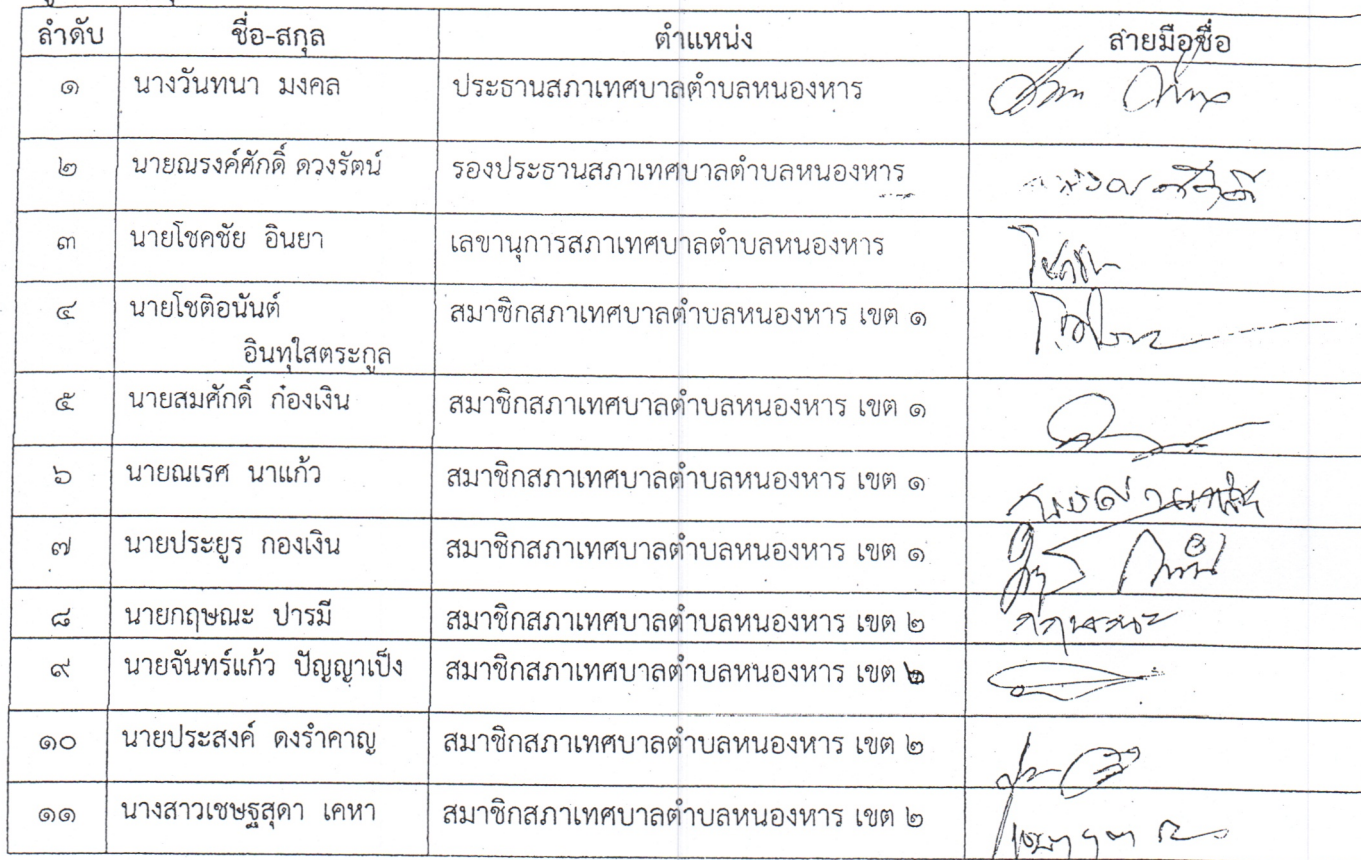 ลำดับ ชื่อ-สกุล ตำแหน่ง ลายมือชื่อ
๑ นางวันทนา มงคล ประธานสภาเทศบาลตำบลหนองหาร
๒ นายณรงค์ศักดิ์ ดวงรัตน์ รองประธานสภาเทศบาลตำบลหนองหาร
๓ นายโชคชัย อินยา เลขานุการสภาเทศบาลตำบลหนองหาร
๔ นายโชติอนันต์ สมาชิกสภาเทศบาลตำบลหนองหาร เขต ๑
อินทุใสตระกูล
๕ นายสมศักดิ์ ก๋องเงิน สมาชิกสภาเทศบาลตำบลหนองหาร เขต ๑
๖ นายณเรศ นาแก้ว สมาชิกสภาเทศบาลตำบลหนองหาร เขต ๑
๗ นายประยูร กองเงิน สมาชิกสภาเทศบาลตำบลหนองหาร เขต ๑
๘ นายกฤษณะ ปารมี สมาชิกสภาเทศบาลตำบลหนองหาร เขต ๒ กฤษณะ
๙ นายจันทร์แก้ว ปัญญาเป็ง สมาชิกสภาเทศบาลตำบลหนองหาร เขต ๒
๑๐ นายประสงค์ ดงรำคาญ สมาชิกสภาเทศบาลตำบลหนองหาร เขต ๒
๑๑ นางสาวเชษฐสุดา เคหา สมาชิกสภาเทศบาลตำบลหนองหาร เขต ๒